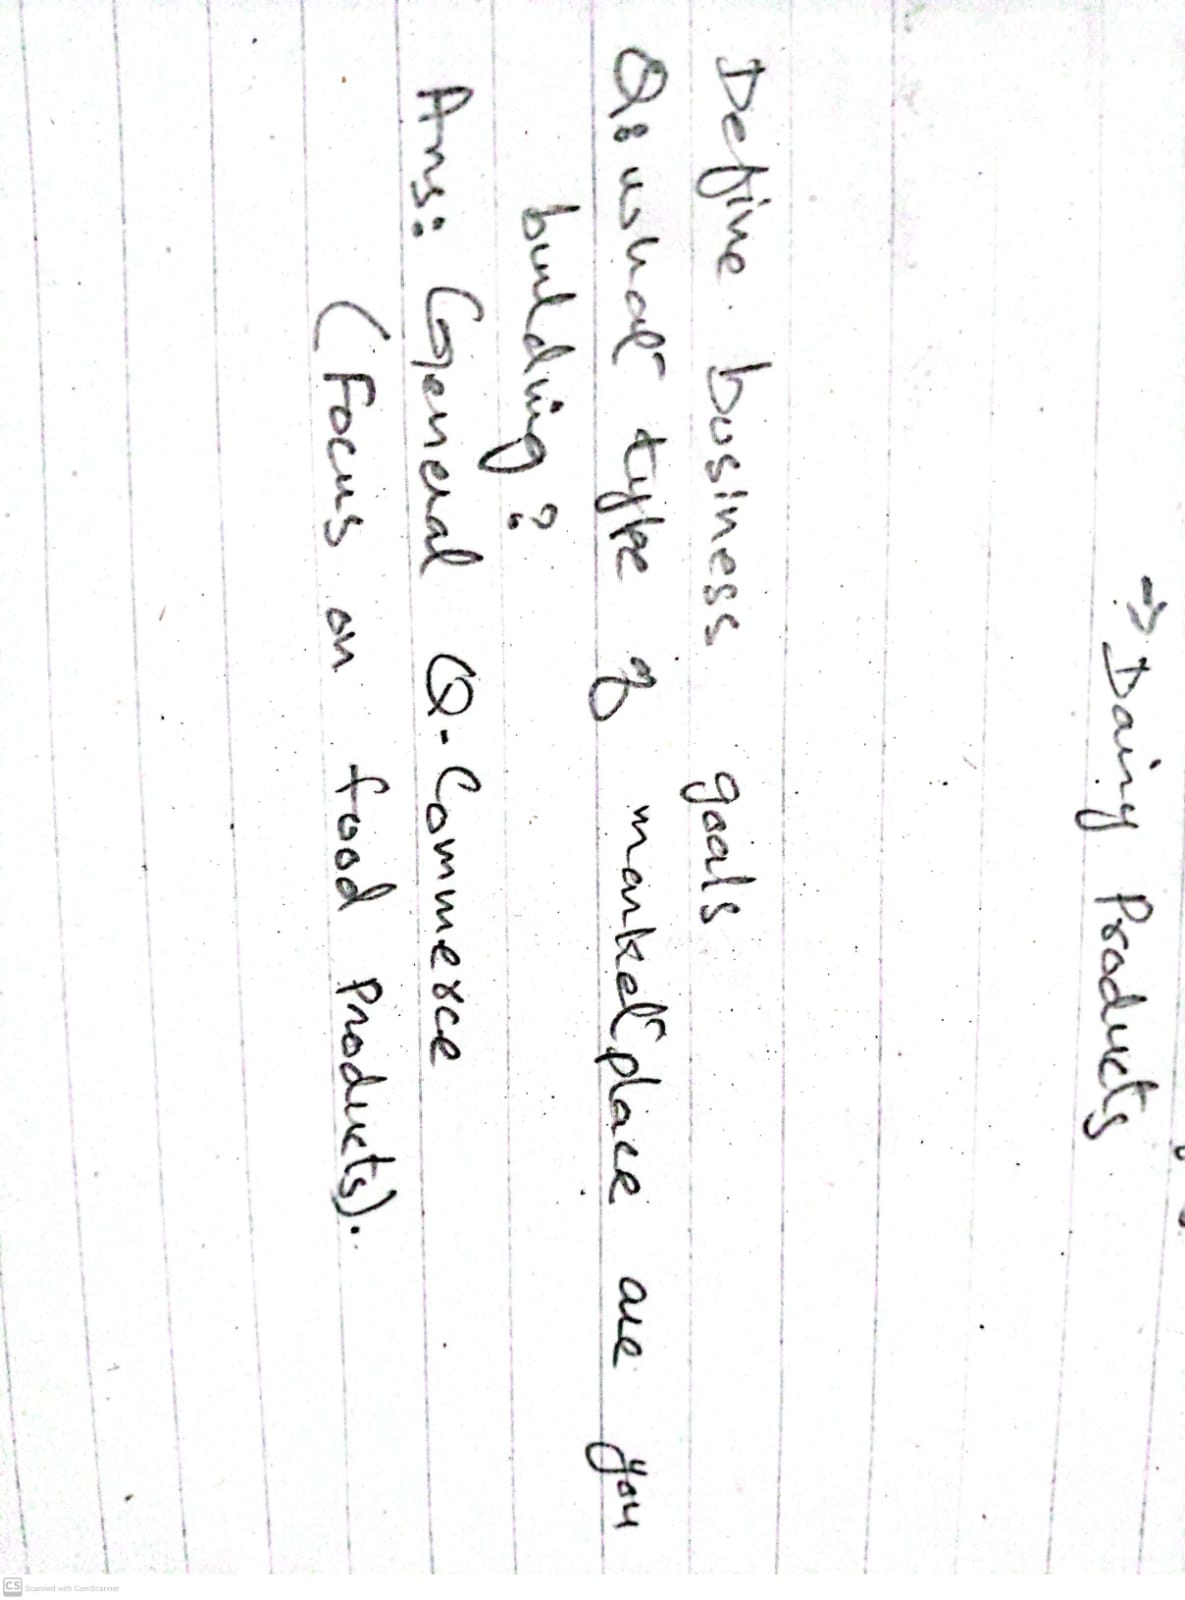 → Dairy Products
Define business goals
Q: what type of marketplace are you
building?
Ans: General Q-Commerce
(Focus on food Products).
CS Scanned with CamScanner